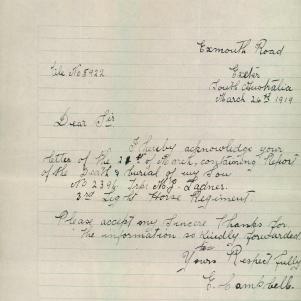 Exmouth Road
File No 8922
Exeter
South Australia
March 26th 1919
Dear Sir
I hereby acknowledge your
letter of the 21st of March, containing Report
of the Death & burial of my son
No 2396 Trp: M. J. Ladner.
3rd Light Horse Regiment
Please accept my Sincere Thanks for
the information so kindly forwarded
Yours Respectfully
E. Campbell.